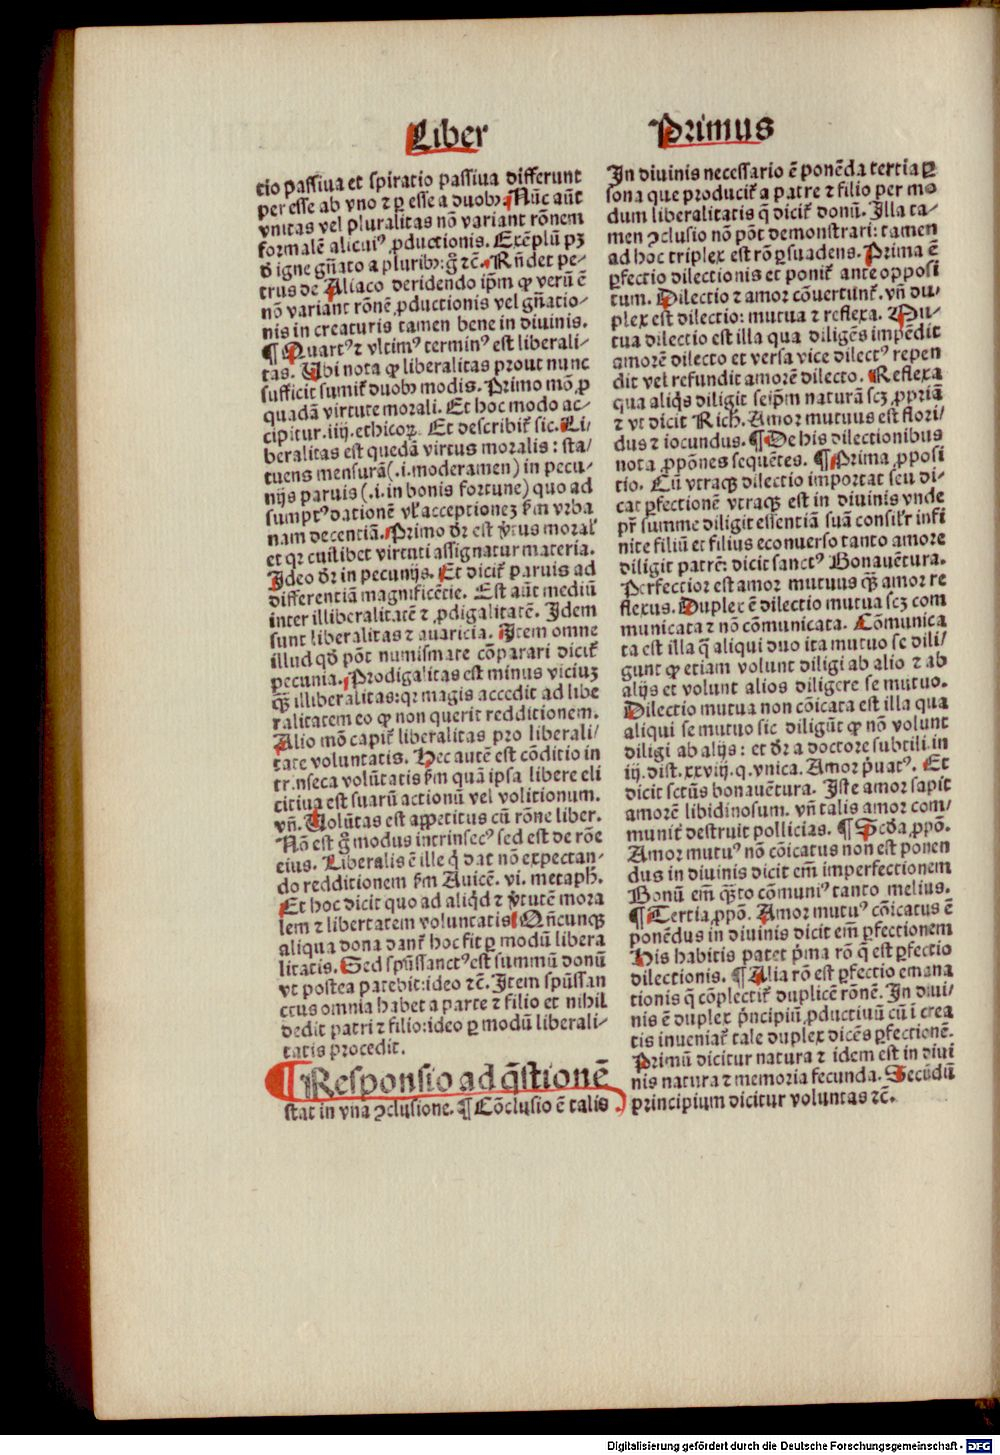 Liber Primus
tio passiua et spiratio passiua differunt
per esse ab vno ⁊ ꝑ esse a duobꝰ. Nūc aūt
vnitas vel pluralitas nō variant rōnem
formalē alicuiꝰ ꝓductionis. Exēplū pꝫ
đ igne gn̄ato a pluribꝰ: gͦ ⁊c. Rn̄det pe-
trus de Aliaco deridendo ip̄m ꝙ verū ē
nō variant rōnē ꝓductionis vel gn̄atio-
nis in creaturis tamen bene in diuinis.
¶ Quartꝰ ⁊ vltimꝰ terminꝰ est liberali-
tas. Ubi nota ꝙ liberalitas prout nunc
sufficit sumit᷑ duobꝰ modis. Primo mō ꝓ
quadā virtute morali. Et hoc modo ac-
cipitur .iiij. ethicoꝝ. Et describit᷑ sic. Li/
beralitas est quedā virtus moralis : sta/
tuens mensurā (.i. moderamen) in pecu-
nijs paruis (.i. in bonis fortune) quo ad
sumptꝰ dationē vl᷑ acceptioneꝫ ẜm vrba
nam decentiā. Primo dr̄ est v̓tus moral᷑
et qꝛ cuilibet virtuti assignatur materia.
Ideo dr̄ in pecunijs. Et dicit᷑ paruis ad
differentiā magnificētie. Est aūt mediū
inter illiberalitatē ⁊ ꝓdigalitatē. Idem
sunt liberalitas ⁊ auaricia. Item omne
illud qd̄ pōt numismate cōparari dicit᷑
pecunia. Prodigalitas est minus viciuꝫ
q̄ꝫ illiberalitas: qꝛ magis accedit ad libe
ralitatem eo ꝙ non querit redditionem.
Alio mō capit᷑ liberalitas pro liberali/
tate voluntatis. Hec autē est cōditio in
trinseca volūtatis ẜm quā ipsa libere eli
citiua est suarū actionū vel volitionum.
vn̄. Uolūtas est appetitus cū rōne liber.
Nō est gͦ modus intrinsecꝰ sed est de rōe
eius. Liberalis ē ille q̇ dat nō expectan-
do redditionem ẜm Auicē. vi. metaph̄.
Et hoc dicit quo ad aliqd̓ ⁊ v̓tutē mora
lem ⁊ libertatem voluntatis. Qn̄cunqꝫ
aliqua dona dant᷑ hoc fit ꝑ modū libera
litatis. Sed spūssanctꝰ est summū donū
vt postea patebit: ideo ⁊c. Item spūssan
ctus omnia habet a parte ⁊ filio et nihil
dedit patri ⁊ filio: ideo ꝑ modū liberali-
tatis procedit.
¶ Responsio ad q̄stionē
stat in vna ꝯclusione. ¶ Cōclusio ē talis
In diuinis necessario ē ponēda tertia ꝑ
sona que producit᷑ a patre ⁊ filio per mo
dum liberalitatis q̄ dicit᷑ donū. Illa ta-
men ꝯclusio nō pōt demonstrari: tamen
ad hoc triplex est rō ꝑsuadens. Prima ē
ꝑfectio dilectionis et ponit᷑ ante opposi
tum. Dilectio ⁊ amor cōuertunt᷑. vn̄ du/
plex est dilectio: mutua ⁊ reflexa. Mu-
tua dilectio est illa qua diligēs impēdit
amorē dilecto et versa vice dilectꝰ repen
dit vel refundit amorē dilecto. Reflexa
qua aliqͥs diligit seip̄m naturā scꝫ ꝓpriā
⁊ vt dicit Rich̄. Amor mutuus est flori/
dus ⁊ iocundus. ¶ De his dilectionibus
nota ꝓpōnes sequētes. ¶ Prima ꝓposi
tio. Cū vtraqꝫ dilectio importat seu di-
cat ꝑfectionē vtraqꝫ est in diuinis vnde
pr̄ summe diligit essentiā suā consil᷑r infi
nite filiū et filius econuerso tanto amore
diligit patrē: dicit sanctꝰ Bonauētura.
Perfectior est amor mutuus q̄ꝫ amor re
flexus. Duplex ē dilectio mutua scꝫ com
municata ⁊ nō cōmunicata. Cōmunica
ta est illa q̄ aliqui duo ita mutuo se dili/
gunt ꝙ etiam volunt diligi ab alio ⁊ ab
alijs et volunt alios diligere se mutuo.
Dilectio mutua non cōicata est illa qua
aliqui se mutuo sic diligūt ꝙ nō volunt
diligi ab alijs : et dr̄ a doctore subtili in
iij. dist. xxviij. q. vnica. Amor p̓uatꝰ. Et
dicit sctūs bonauētura. Iste amor sapit
amorē libidinosum. vn̄ talis amor com/
munit᷑ destruit pollicias. ¶ Scd̓a ꝓpō.
Amor mutuꝰ nō cōicatus non est ponen
dus in diuinis dicit em̄ imperfectionem
Bonū em̄ q̄ꝫto cōmuniꝰ tanto melius.
¶ Tertia ꝓpō. Amor mutuꝰ cōicatus ē
ponēdus in diuinis dicit em̄ ꝑfectionem
His habitis patet p̓ma rō q̄ est ꝑfectio
dilectionis. ¶ Alia rō est ꝑfectio emana
tionis q̄ cōplectit᷑ duplicē rōnē. In diui/
nis ē duplex p̓ncipiū ꝓductiuū cū ī crea
tis inueniat᷑ tale duplex dicēs ꝑfectionē.
Primū dicitur natura ⁊ idem est in diui
nis natura ⁊ memoria fecunda. Secūdū
principium dicitur voluntas ⁊c.
Digitalisierung gefördert durch die Deutsche Forschungsgemeinschaft - DFG